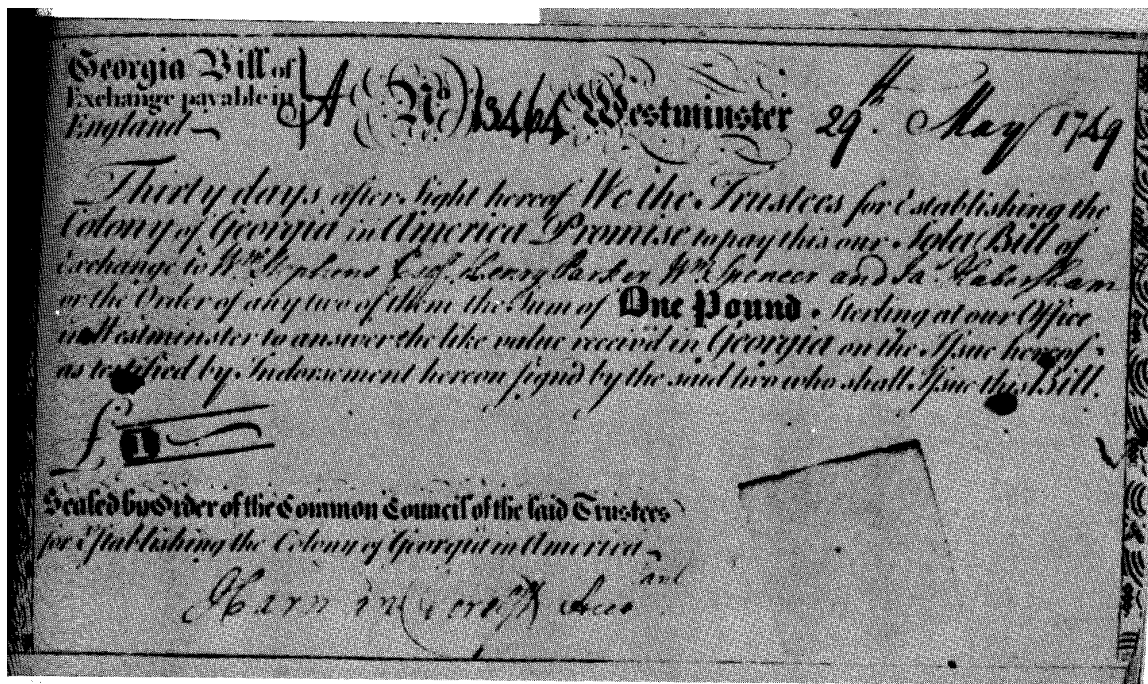 Georgia Bill of
Exchange payable in
England
A No 13464 Westminster 29th May 1749
Thirty days after Sight hereof We the Trustees for Establishing the
Colony of Georgia in America Promise to pay this our Sola Bill of
Exchange to Wm Stephens Esqr. Henry Parker Wm Spencer and Ja: Habersham
or the Order of any two of them the Sum of One Pound Sterling at our Office
in Westminster to answer the like value receiv'd in Georgia on the Issue hereof
as testified by Indorsement hereon sign'd by the said two who shall Issue this Bill.
£ 1
Sealed by Order of the Common Council of the said Trustees
for Establishing the Colony of Georgia in America